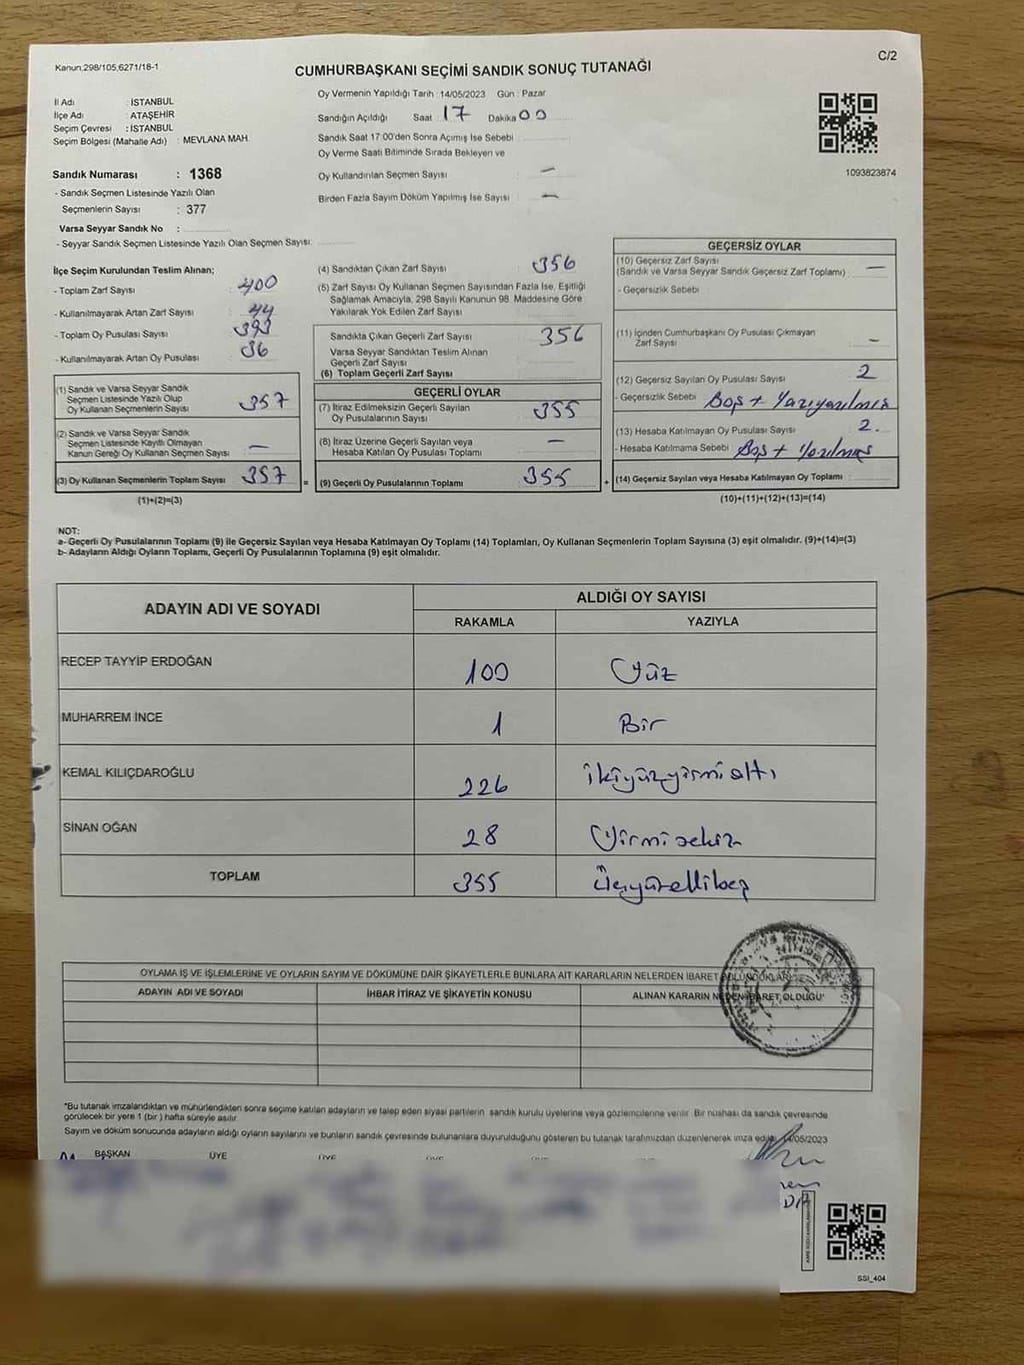 Kanun,298/105,6271/18-1
C/2
CUMHURBAŞKANI SEÇİMİ SANDIK SONUÇ TUTANAĞI
İl Adı : İSTANBUL
İlçe Adı : ATAŞEHİR
Seçim Çevresi : İSTANBUL
Seçim Bölgesi (Mahalle Adı) : MEVLANA MAH.
Oy Vermenin Yapıldığı Tarih : 14/05/2023 Gün : Pazar
Sandığın Açıldığı Saat 17 Dakika 00
Sandık Saat 17:00'den Sonra Açımış İse Sebebi
Oy Verme Saati Bitiminde Sırada Bekleyen ve
Oy Kullandırılan Seçmen Sayısı : —
Birden Fazla Sayım Döküm Yapılmış İse Sayısı : —
1093823874
Sandık Numarası : 1368
- Sandık Seçmen Listesinde Yazılı Olan
Seçmenlerin Sayısı : 377
Varsa Seyyar Sandık No :
- Seyyar Sandık Seçmen Listesinde Yazılı Olan Seçmen Sayısı:
İlçe Seçim Kurulundan Teslim Alınan;
- Toplam Zarf Sayısı : 400
- Kullanılmayarak Artan Zarf Sayısı : 44
- Toplam Oy Pusulası Sayısı : 393
- Kullanılmayarak Artan Oy Pusulası : 36
(1) Sandık ve Varsa Seyyar Sandık
Seçmen Listesinde Yazılı Olup
Oy Kullanan Seçmenlerin Sayısı : 357
(2) Sandık ve Varsa Seyyar Sandık
Seçmen Listesinde Kayıtlı Olmayan
Kanun Gereği Oy Kullanan Seçmen Sayısı : —
(3) Oy Kullanan Seçmenlerin Toplam Sayısı : 357
(1)+(2)=(3)
(4) Sandıktan Çıkan Zarf Sayısı : 356
(5) Zarf Sayısı Oy Kullanan Seçmen Sayısından Fazla İse, Eşitliği
Sağlamak Amacıyla, 298 Sayılı Kanunun 98. Maddesine Göre
Yakılarak Yok Edilen Zarf Sayısı
Sandıkta Çıkan Geçerli Zarf Sayısı : 356
Varsa Seyyar Sandıktan Teslim Alınan
Geçerli Zarf Sayısı
(6) Toplam Geçerli Zarf Sayısı
GEÇERLİ OYLAR
(7) İtiraz Edilmeksizin Geçerli Sayılan
Oy Pusulalarının Sayısı : 355
(8) İtiraz Üzerine Geçerli Sayılan veya
Hesaba Katılan Oy Pusulaları Toplamı : —
= (9) Geçerli Oy Pusulalarının Toplamı : 355 +
GEÇERSİZ OYLAR
(10) Geçersiz Zarf Sayısı
(Sandık ve Varsa Seyyar Sandık Geçersiz Zarf Toplamı) : —
- Geçersizlik Sebebi
(11) İçinden Cumhurbaşkanı Oy Pusulası Çıkmayan
Zarf Sayısı : —
(12) Geçersiz Sayılan Oy Pusulası Sayısı : 2
- Geçersizlik Sebebi Boş +
(13) Hesaba Katılmayan Oy Pusulası Sayısı : 2.
- Hesaba Katılmama Sebebi Boş + Yazılmış
(14) Geçersiz Sayılan veya Hesaba Katılmayan Oy Toplamı :
(10)+(11)+(12)+(13)=(14)
NOT:
a- Geçerli Oy Pusulalarının Toplamı (9) ile Geçersiz Sayılan veya Hesaba Katılmayan Oy Toplamı (14) Toplamları, Oy Kullanan Seçmenlerin Toplam Sayısına (3) eşit olmalıdır. (9)+(14)=(3)
b- Adayların Aldığı Oyların Toplamı, Geçerli Oy Pusulalarının Toplamına (9) eşit olmalıdır.
ADAYIN ADI VE SOYADI ALDIĞI OY SAYISI
RAKAMLA YAZIYLA
RECEP TAYYİP ERDOĞAN 100 Yüz
MUHARREM İNCE 1 Bir
KEMAL KILIÇDAROĞLU 226 ikiyüzyirmialtı
SİNAN OĞAN 28 Yirmisekiz
TOPLAM 355 Üçyüzellibeş
OYLAMA İŞ VE İŞLEMLERİNE VE OYLARIN SAYIM VE DÖKÜMÜNE DAİR ŞİKAYETLERLE BUNLARA AİT KARARLARIN NELERDEN İBARET BULUNDUKLARI
ADAYIN ADI VE SOYADI İHBAR İTİRAZ VE ŞİKAYETİN KONUSU ALINAN KARARIN NEDEN İBARET OLDUĞU*
*Bu tutanak imzalandıktan ve mühürlendikten sonra seçime katılan adayların ve talep eden siyasi partilerin sandık kurulu üyelerine veya gözlemcilerine verilir. Bir nüshası da sandık çevresinde
görülecek bir yere 1 (bir) hafta süreyle asılır.
Sayım ve döküm sonucunda adayların aldığı oyların sayılarını ve bunların sandık çevresinde bulunanlara duyurulduğunu gösteren bu tutanak tarafımızdan düzenlenerek imza edildi. 14/05/2023
BAŞKAN ÜYE
SSI_404